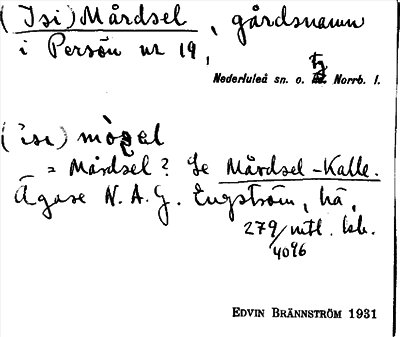 (Isi) Mårdsel, gårdsnamn
i Persön nr 19,
Nederluleå sn. o. tg Norrb. l.
(isi) mòʐel
= Mårdsel? Se Mårdsel-Kalle.
Ägare N. A. G. Engström, hä,
279/4096 mtl. tsk.
EDVIN BRÄNNSTRÖM 1931